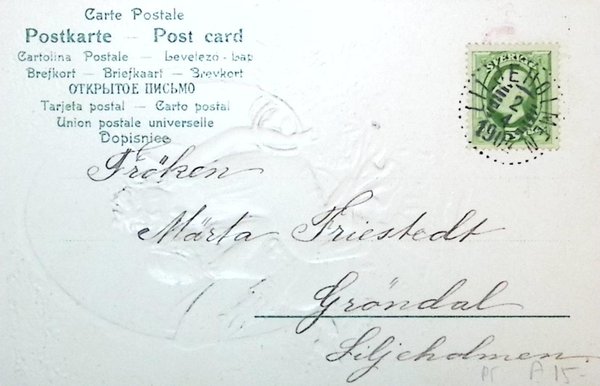 Carte Postale
Postkarte — Post card
Cartolina Postale — Levelező-Lap
Brefkort — Briefkaart — Brevkort
ОТКРЫТОЕ ПИСЬМО
Tarjeta postal — Carto postal
Union postale universelle
Dopisnice
SVERIGE
LILJEHOLMEN
2
190
Fröken
Märta Friestedt
Gröndal
Liljeholmen
A 15-